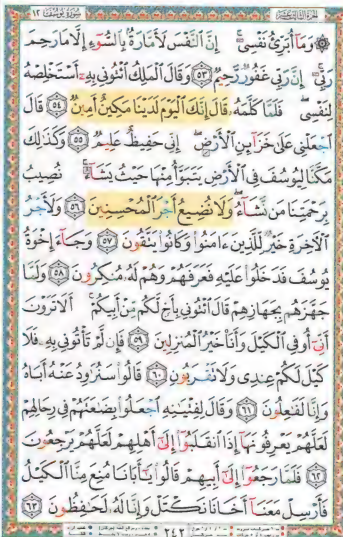 الجزء الثالث عشر سورة يوسف ١٢
۞ وَمَآ أُبَرِّئُ نَفْسِىٓ ۚ إِنَّ ٱلنَّفْسَ لَأَمَّارَةٌۢ بِٱلسُّوٓءِ إِلَّا مَا رَحِمَ
رَبِّىٓ ۚ إِنَّ رَبِّى غَفُورٌ رَّحِيمٌ ٥٣ وَقَالَ ٱلْمَلِكُ ٱئْتُونِى بِهِۦٓ أَسْتَخْلِصْهُ
لِنَفْسِى ۖ فَلَمَّا كَلَّمَهُۥ قَالَ إِنَّكَ ٱلْيَوْمَ لَدَيْنَا مَكِينٌ أَمِينٌ ٥٤ قَالَ
ٱجْعَلْنِى عَلَىٰ خَزَآئِنِ ٱلْأَرْضِ ۖ إِنِّى حَفِيظٌ عَلِيمٌ ٥٥ وَكَذَٰلِكَ
مَكَّنَّا لِيُوسُفَ فِى ٱلْأَرْضِ يَتَبَوَّأُ مِنْهَا حَيْثُ يَشَآءُ ۚ نُصِيبُ
بِرَحْمَتِنَا مَن نَّشَآءُ ۖ وَلَا نُضِيعُ أَجْرَ ٱلْمُحْسِنِينَ ٥٦ وَلَأَجْرُ
ٱلْـَٔاخِرَةِ خَيْرٌ لِّلَّذِينَ ءَامَنُوا۟ وَكَانُوا۟ يَتَّقُونَ ٥٧ وَجَآءَ إِخْوَةُ
يُوسُفَ فَدَخَلُوا۟ عَلَيْهِ فَعَرَفَهُمْ وَهُمْ لَهُۥ مُنكِرُونَ ٥٨ وَلَمَّا
جَهَّزَهُم بِجَهَازِهِمْ قَالَ ٱئْتُونِى بِأَخٍ لَّكُم مِّنْ أَبِيكُمْ ۚ أَلَا تَرَوْنَ
أَنِّىٓ أُوفِى ٱلْكَيْلَ وَأَنَا۠ خَيْرُ ٱلْمُنزِلِينَ ٥٩ فَإِن لَّمْ تَأْتُونِى بِهِۦ فَلَا
كَيْلَ لَكُمْ عِندِى وَلَا تَقْرَبُونِ ٦٠ قَالُوا۟ سَنُرَٰوِدُ عَنْهُ أَبَاهُ
وَإِنَّا لَفَٰعِلُونَ ٦١ وَقَالَ لِفِتْيَٰنِهِ ٱجْعَلُوا۟ بِضَٰعَتَهُمْ فِى رِحَالِهِمْ
لَعَلَّهُمْ يَعْرِفُونَهَآ إِذَا ٱنقَلَبُوٓا۟ إِلَىٰٓ أَهْلِهِمْ لَعَلَّهُمْ يَرْجِعُونَ
٦٢ فَلَمَّا رَجَعُوٓا۟ إِلَىٰٓ أَبِيهِمْ قَالُوا۟ يَٰٓأَبَانَا مُنِعَ مِنَّا ٱلْكَيْلُ
فَأَرْسِلْ مَعَنَآ أَخَانَا نَكْتَلْ وَإِنَّا لَهُۥ لَحَٰفِظُونَ ٦٣
٢٤٢